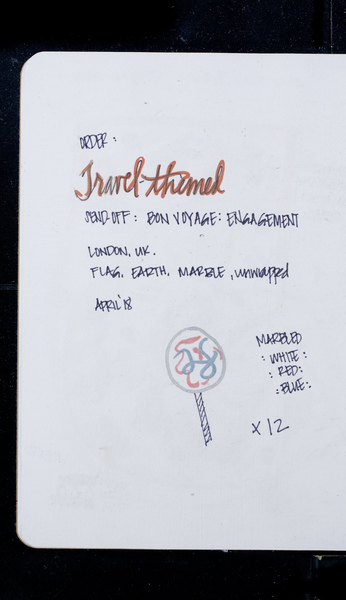 ORDER:
Travel-themed
SEND-OFF: BON VOYAGE: ENGAGEMENT
LONDON, UK.
FLAG, EARTH, MARBLE, unwrapped
APRIL '18
MARBLED
: WHITE :
: RED:
: BLUE:
x 12